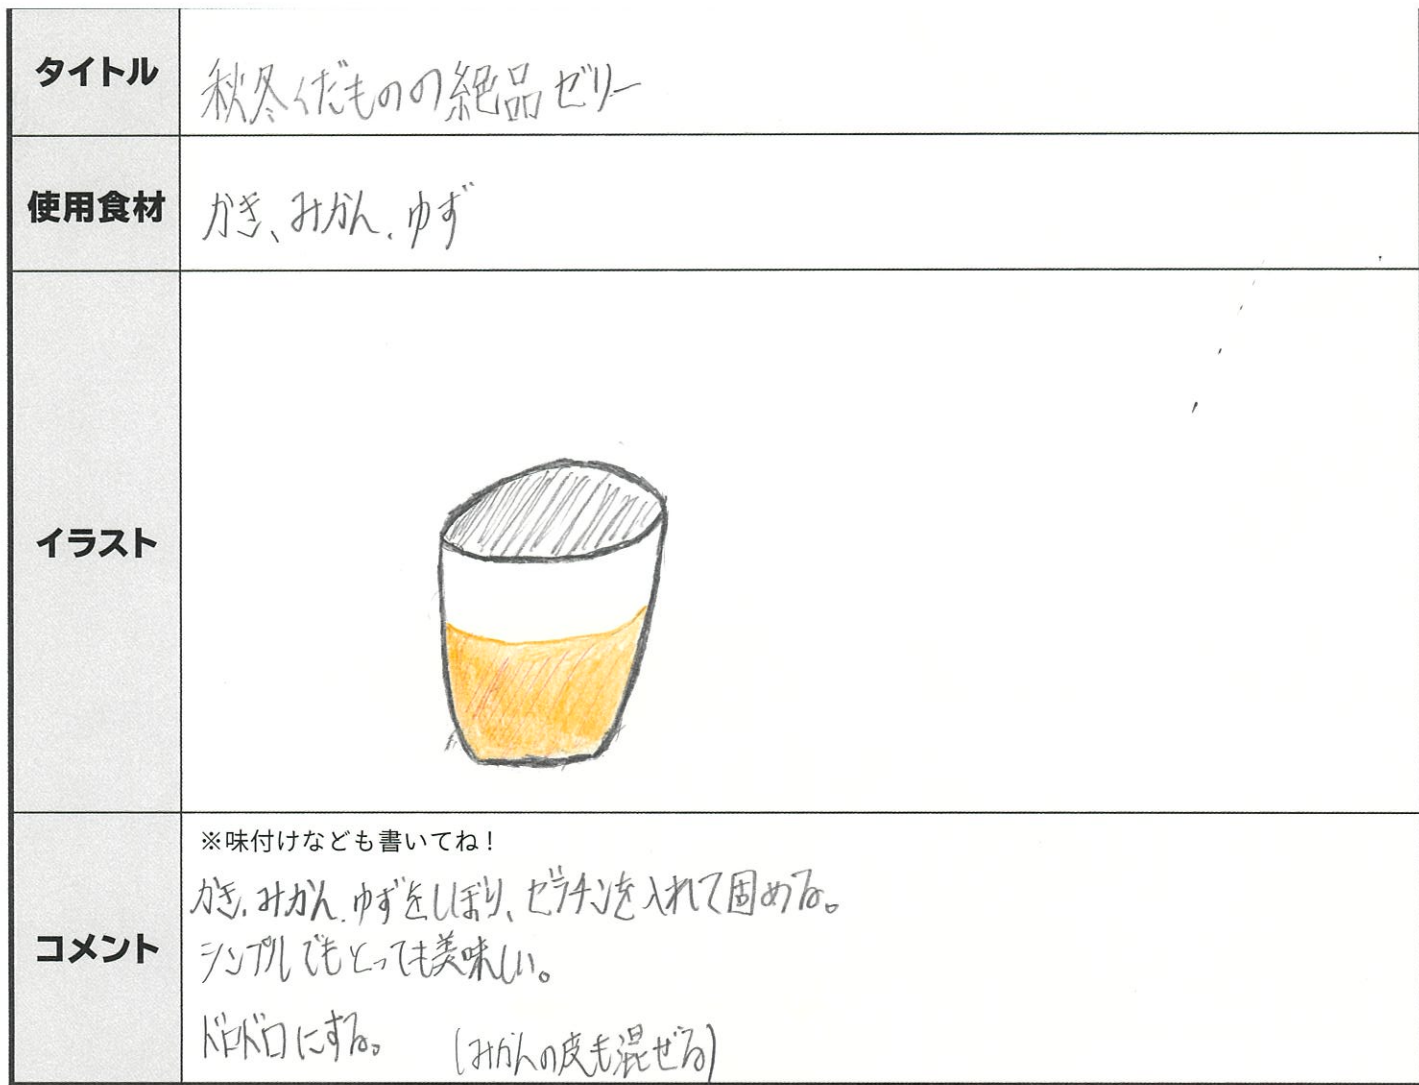 タイトル
秋冬くだものの絶品ゼリー
使用食材
かき、みかん、ゆず
イラスト
コメント
※味付けなども書いてね!
かき、みかん、ゆずをしぼり、ゼラチンを入れて固める。
シンプルでもとっても美味しい。
ドロドロにする。 (みかんの皮も混ぜる)